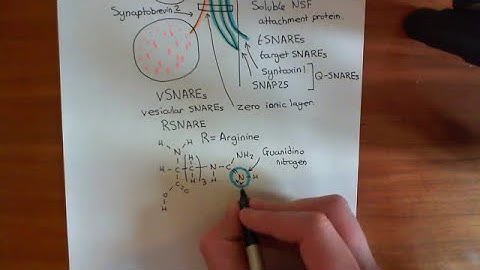 Synaptobrevin 2
Soluble NSF
attachment protein.
tSNAREs
target SNAREs
Syntaxin 1
SNAP25
Q-SNAREs
vSNAREs
vesicular SNAREs
zero ionic layer.
RSNARE
R = Arginine
Guanidino
nitrogen
H H H NH₂
H - C - ( C ) - N - C
N H 3 H N - H
C O
O
H